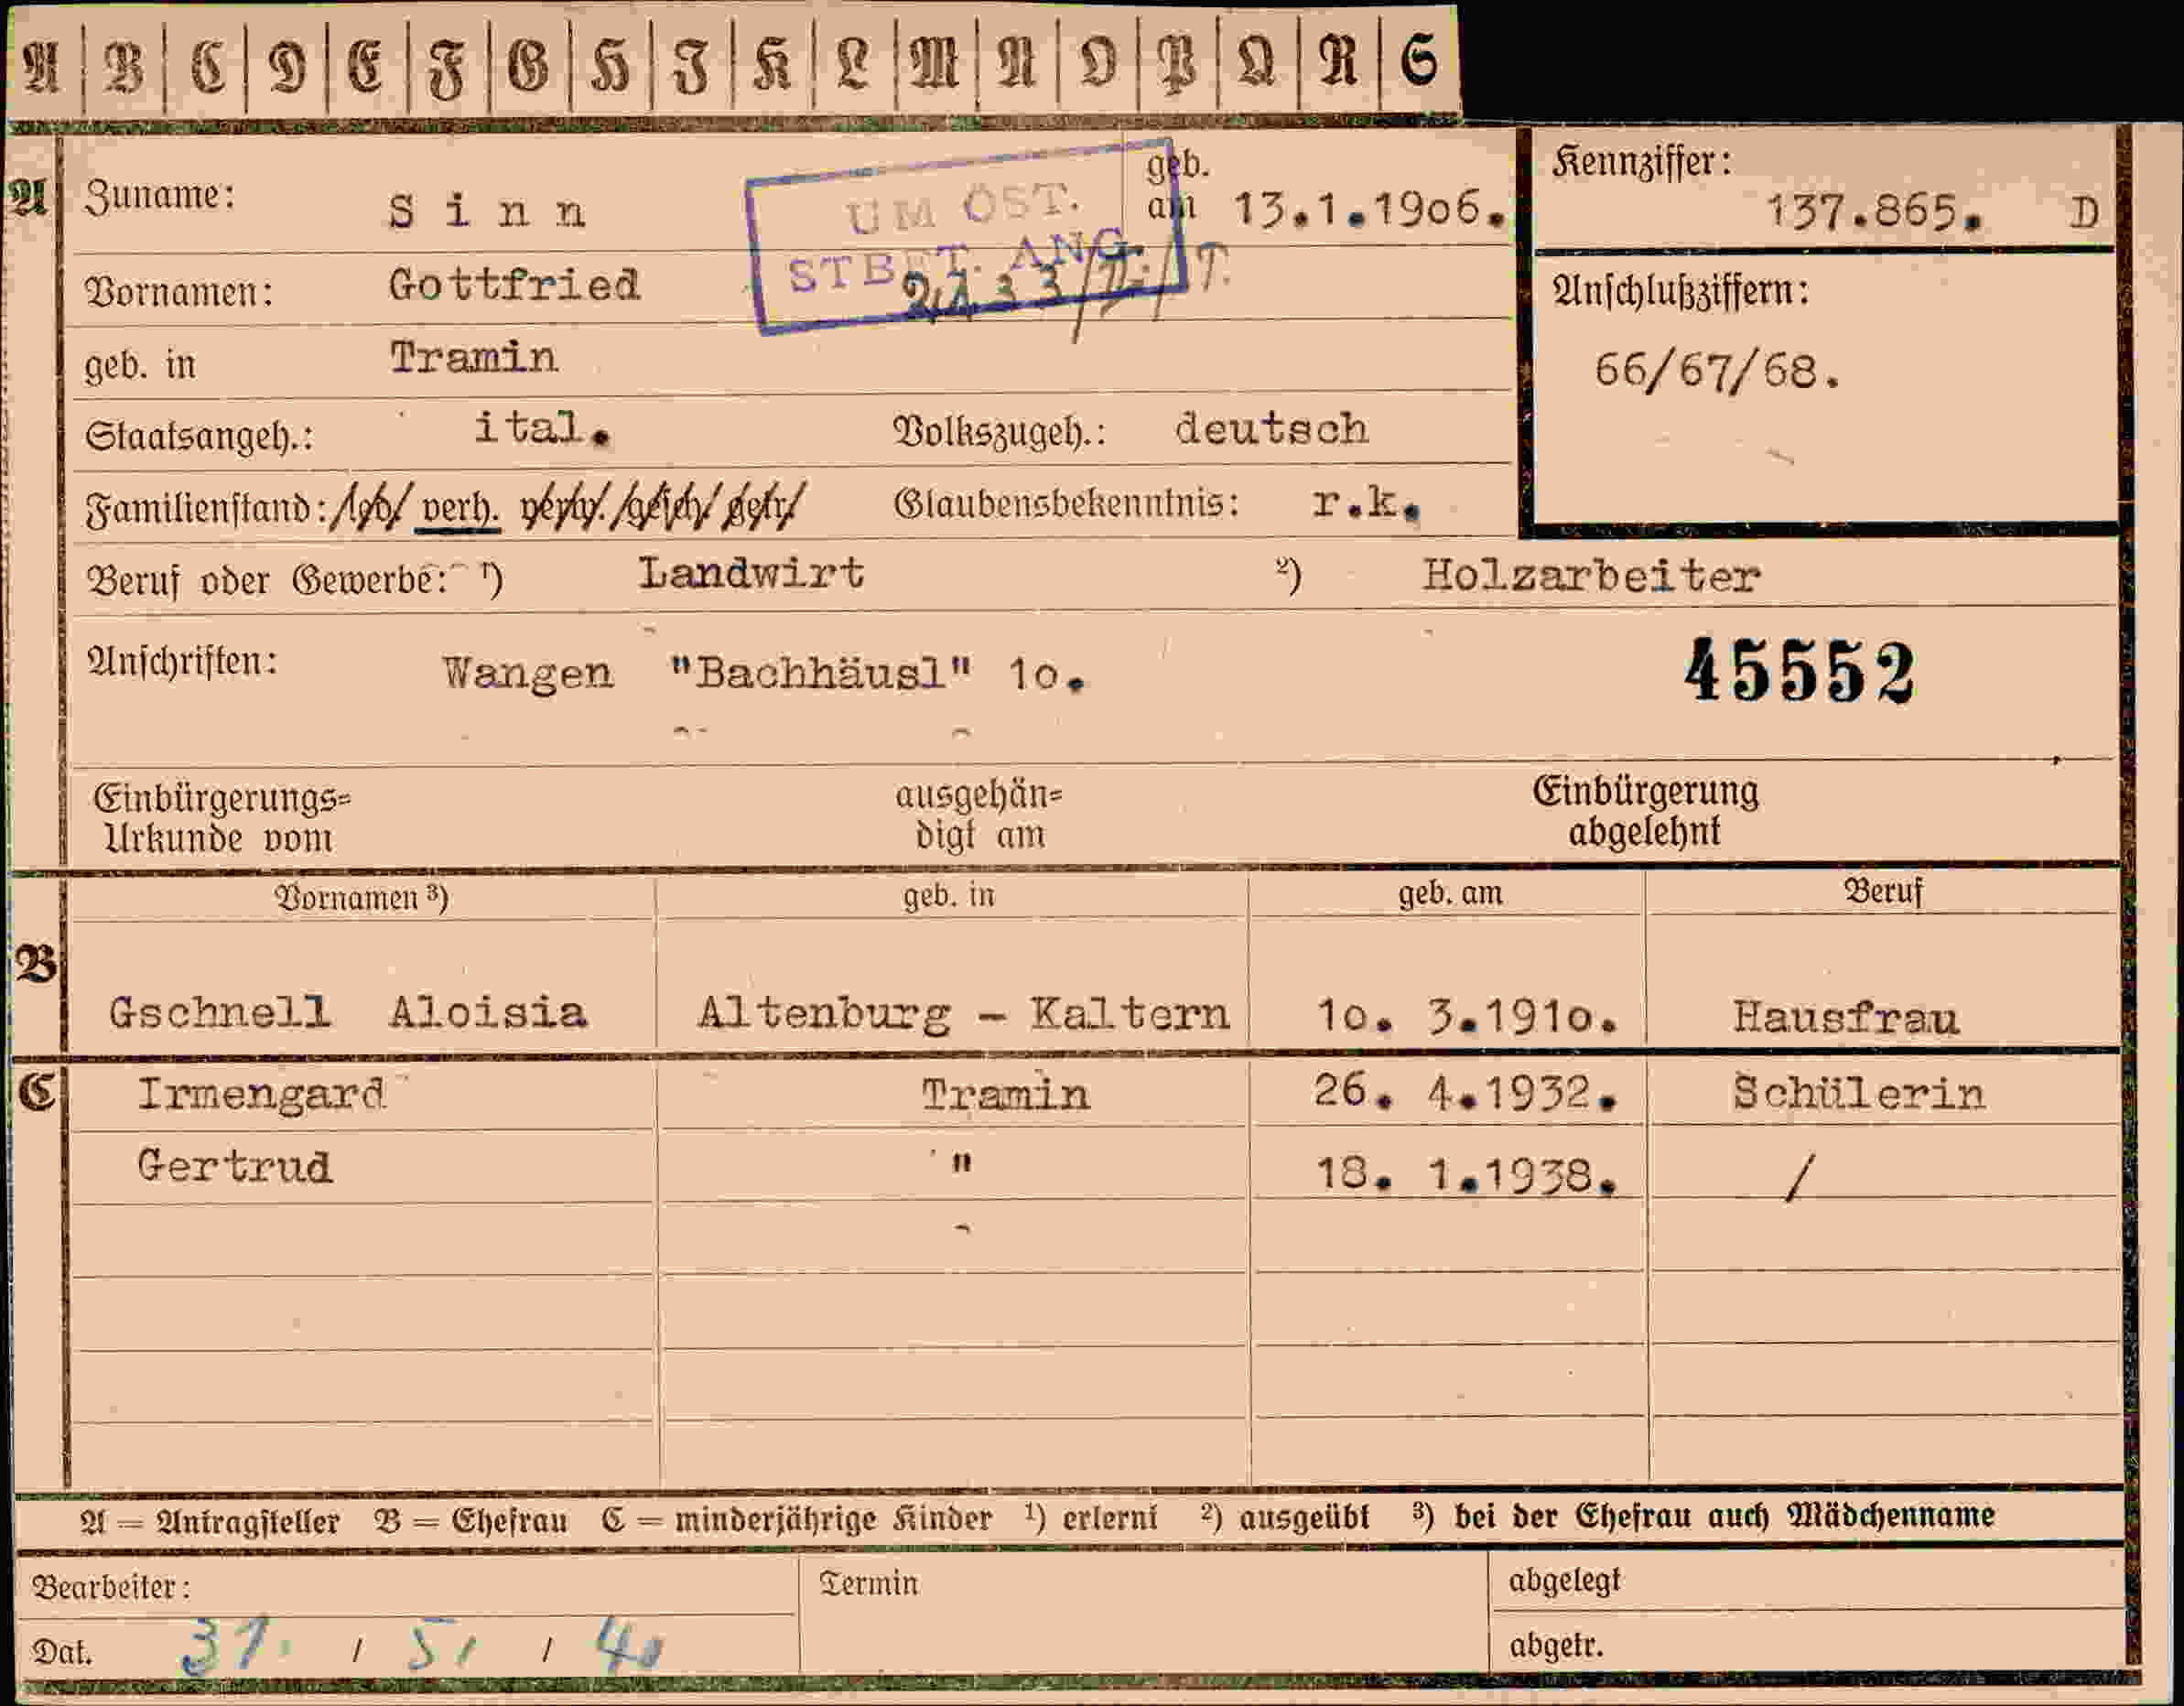 A B C D E F G H J K L M N O P Q R S
A Zuname: Sinn geb. am 13.1.1906. Kennziffer: 137.865. D
UM ÖST.
STBET. ANG.
Vornamen: Gottfried Anschlußziffern:
geb. in Tramin 66/67/68.
Staatsangeh.: ital. Volkszugeh.: deutsch
Familienstand: verh. Glaubensbekenntnis: r.k.
Beruf oder Gewerbe: ¹) Landwirt ²) Holzarbeiter
Anschriften: Wangen "Bachhäusl" 10. 45552
Einbürgerungs= ausgehän= Einbürgerung
Urkunde vom digt am abgelehnt
Vornamen ³) geb. in geb. am Beruf
B Gschnell Aloisia Altenburg - Kaltern 10. 3.1910. Hausfrau
C Irmengard Tramin 26. 4.1932. Schülerin
Gertrud " 18. 1.1938. /
A = Antragsteller B = Ehefrau C = minderjährige Kinder ¹) erlernt ²) ausgeübt ³) bei der Ehefrau auch Mädchenname
Bearbeiter: Termin abgelegt
Dat. 31. / 5. / 40 abgetr.